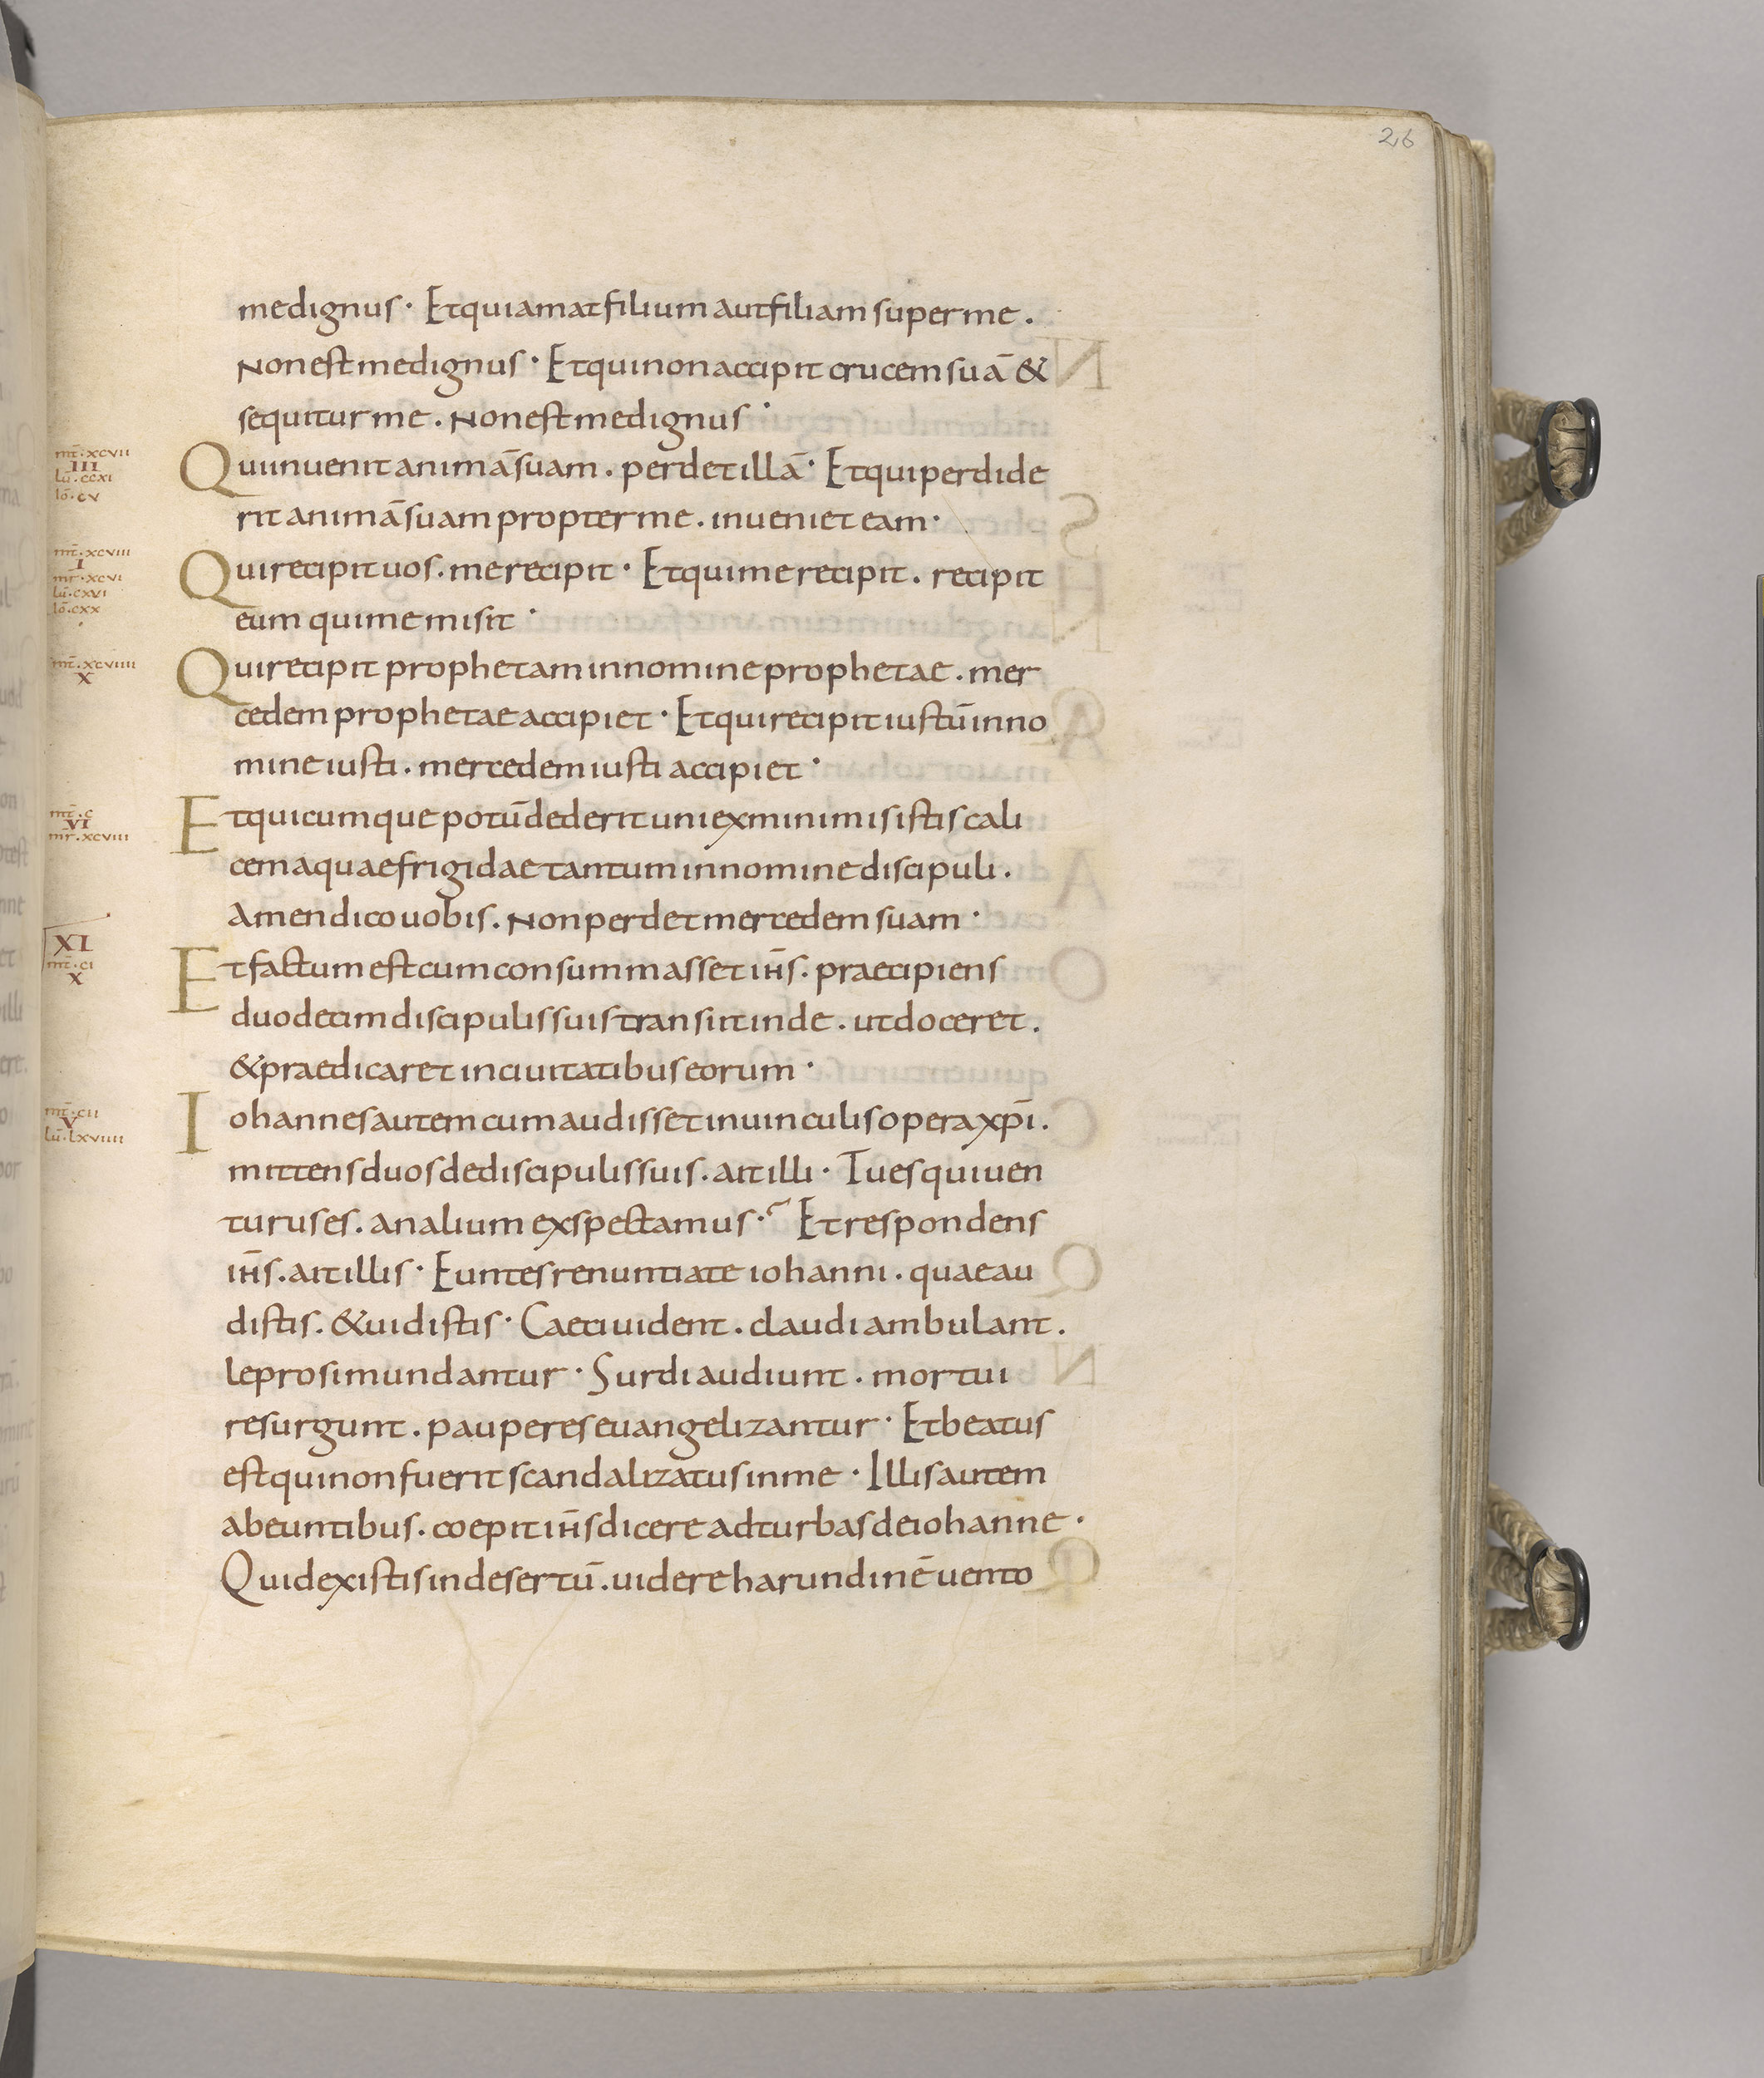 26
me dignus · Et qui amat filium aut filiam super me .
Non est me dignus · Et qui non accipit crucem suā &
sequitur me . Non est me dignus ·
mt̄ · xcvii
III
lū · ccxi
Io̅ · cv
Qui inuenit animā suam . perdet illā · Et qui perdide
rit animā suam propter me . inueniet eam ·
mt̄ · xcviii
I
mr̄ · xcvi
lū · cxvi
Io̅ · cxx
Qui recipit uos . me recipit · Et qui me recipit . recipit
eum qui me misit ·
mt̄ · xcviiii
X
Qui recipit prophetam in nomine prophetae . mer
cedem prophetae accipiet · Et qui recipit iustū in no
mine iusti . mercedem iusti accipiet ·
mt̄ · c
VI
mr̄ · xcviii
Et quicumque potū dederit uni ex minimis istis cali
cem aquae frigidae tantum in nomine discipuli .
Amen dico uobis . Non perdet mercedem suam ·
XI
mt̄ · ci
X
Et factum est cum consummasset ih̅s . praecipiens
duodecim discipulis suis transiit inde . ut doceret .
& praedicaret in ciuitatibus eorum ·
mt̄ · cii
V
lū · lxviiii
Iohannes autem cum audisset in uinculis opera xp̅i .
mittens duos de discipulis suis . ait illi · Tu es qui uen
turus es . an alium exspectamus ·? Et respondens
ih̅s . ait illis · Euntes renuntiate iohanni . quae au
distis . & uidistis · Caeci uident . claudi ambulant .
leprosi mundantur · Surdi audiunt . mortui
resurgunt . pauperes euangelizantur · Et beatus
est qui non fuerit scandalizatus in me · Illis autem
abeuntibus . coepit ih̅s dicere ad turbas de iohanne ·
Quid existis in desertū . uidere harundinē uento